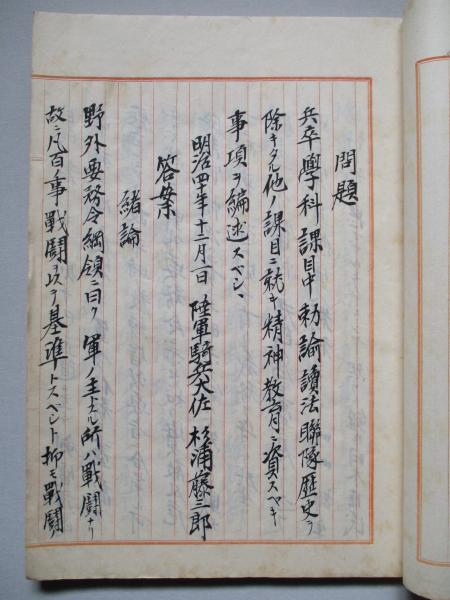 問題
兵卒學科課目中勅諭讀法聯隊歴史ヲ
除キタル他ノ課目ニ就キ精神教育ニ資スベキ
事項ヲ編述スベシ、
明治四十年十二月一日 陸軍騎兵大佐 杉浦藤三郎
答案
緒論
野外要務令綱領ニ曰ク 軍ノ主トスル所ハ戰鬪ナリ
故ニ凡百ノ事戰鬪ヲ以テ基準トスベシト抑モ戰鬪